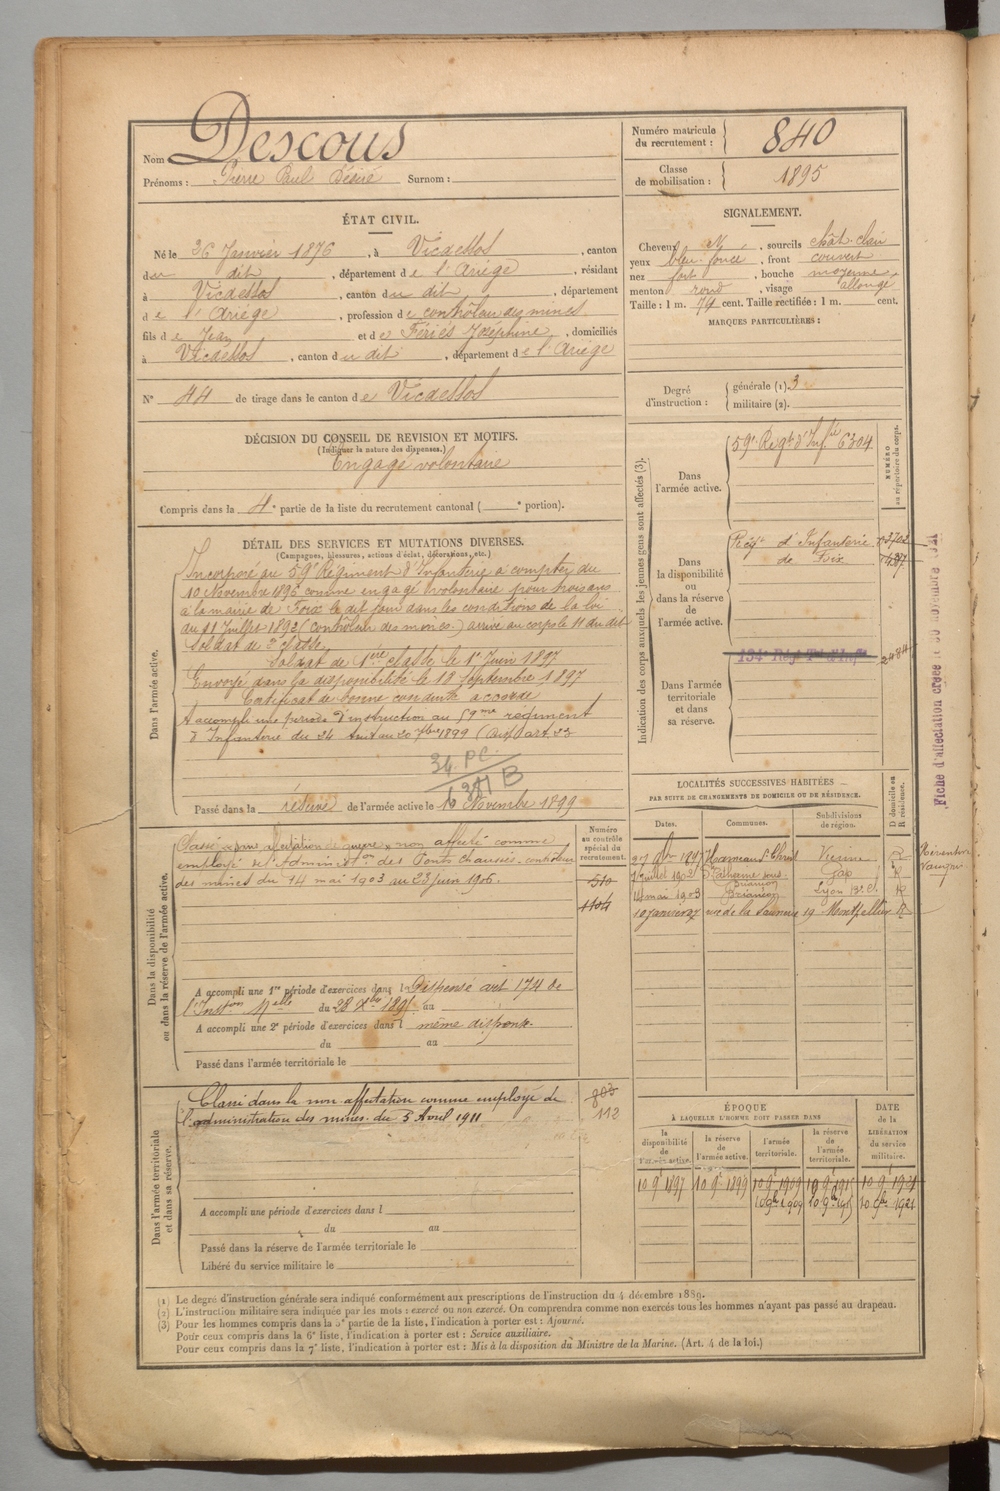 Nom Descous
Prénoms : Pierre Paul Désiré Surnom :
Numéro matricule du recrutement : 840
Classe de mobilisation : 1895
ÉTAT CIVIL.
Né le 26 Janvier 1876, à Vicdessos, canton
du dit, département de l'Ariège, résidant
à Vicdessos, canton du dit, département
de l'Ariège, profession de contrôleur des mines
fils de Jean et de Fériès Joséphine, domiciliés
à Vicdessos, canton du dit, département de l'Ariège
N° 44 de tirage dans le canton de Vicdessos
SIGNALEMENT.
Cheveux et, sourcils chât. clair
yeux bleu foncé, front couvert
nez fort, bouche moyenne
menton rond, visage allongé
Taille : 1 m. 74 cent. Taille rectifiée : 1 m. cent.
MARQUES PARTICULIÈRES :
Degré d'instruction : générale (1). 3
militaire (2).
DÉCISION DU CONSEIL DE REVISION ET MOTIFS.
(Indiquer la nature des dispenses.)
Engagé volontaire
Compris dans la 4e partie de la liste du recrutement cantonal ( e portion).
DÉTAIL DES SERVICES ET MUTATIONS DIVERSES.
(Campagnes, blessures, actions d'éclat, décorations, etc.)
Dans l'armée active.
Incorporé au 59e Régiment d'Infanterie à compter du
10 Novembre 1896 comme engagé volontaire pour trois ans
à la mairie de Foix le dit jour dans les conditions de la loi
du 11 Juillet 1892 (contrôleur des mines.) arrivé au corps le 11 du dit
Soldat de 2e classe
Soldat de 1ère classe le 1er Juin 1897
Envoyé dans la disponibilité le 18 Septembre 1897
Certificat de bonne conduite accordé
A accompli une période d'instruction au 59me régiment
d'Infanterie du 24 Août au 20 7bre 1899
34 PC
1381 B
Passé dans la réserve de l'armée active le 10 Novembre 1899
Indication des corps auxquels les jeunes gens sont affectés (3).
NUMÉRO au répertoire du corps.
Dans l'armée active.
59e Régt d'Infie 6304
Dans la disponibilité ou dans la réserve de l'armée active.
Régt d'Infanterie de Foix
Dans l'armée territoriale et dans sa réserve.
134e Régt Tal d'Infie
2484
Fiche d'affectation créée le 30 novembre 1921
LOCALITÉS SUCCESSIVES HABITÉES
PAR SUITE DE CHANGEMENTS DE DOMICILE OU DE RÉSIDENCE.
Dates. Communes. Subdivisions de région. D domicile ou R résidence.
27 9bre 1897 Hameau St Christ Vienne R
7 juillet 1902 Ste Catherine sous Briançon Gap R
14 mai 1903 Briançon R
10 janvier 07 rue de la Saunerie 19 Montpellier R
Dans la disponibilité ou dans la réserve de l'armée active.
Numéro au contrôle spécial du recrutement.
Classé dans affectation de guerre non affecté comme
employé de l'administon des Ponts chaussées contrôleur
des mines du 14 mai 1903 au 23 juin 1906.
510
1404
A accompli une 1re période d'exercices dans l Dispensé art 174 de
l'Inston Melle du 28 Xbre 1895 au
A accompli une 2e période d'exercices dans l même dispense.
du au
Passé dans l'armée territoriale le
Dans l'armée territoriale et dans sa réserve.
Classé dans la non affectation comme employé de
l'administration des mines du 5 Avril 1911
803
112
A accompli une période d'exercices dans l
du au
Passé dans la réserve de l'armée territoriale le
Libéré du service militaire le
ÉPOQUE
À LAQUELLE L'HOMME DOIT PASSER DANS
la disponibilité de l'armée active. la réserve de l'armée active. l'armée territoriale. la réserve de l'armée territoriale.
DATE de la LIBÉRATION du service militaire.
10 9e 1897 10 9e 1899 10 9e 1909 10 9e 1915 10 9e 1921
10 9bre 1909 10 9bre 1915 10 9bre 1921
(1) Le degré d'instruction générale sera indiqué conformément aux prescriptions de l'instruction du 4 décembre 1889.
(2) L'instruction militaire sera indiquée par les mots : exercé ou non exercé. On comprendra comme non exercés tous les hommes n'ayant pas passé au drapeau.
(3) Pour les hommes compris dans la 5e partie de la liste, l'indication à porter est : Ajourné.
Pour ceux compris dans la 6e liste, l'indication à porter est : Service auxiliaire.
Pour ceux compris dans la 7e liste, l'indication à porter est : Mis à la disposition du Ministre de la Marine. (Art. 4 de la loi.)